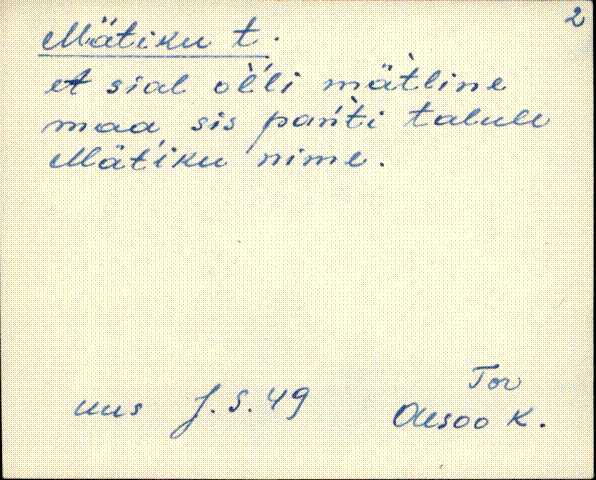 2
Mätiku t.
Et sial ol̀ĺi mät̀line
maa, sis pań̀ti talule
Mät́iku nime.
uus J. S. 49
Tor
Olesoo K.